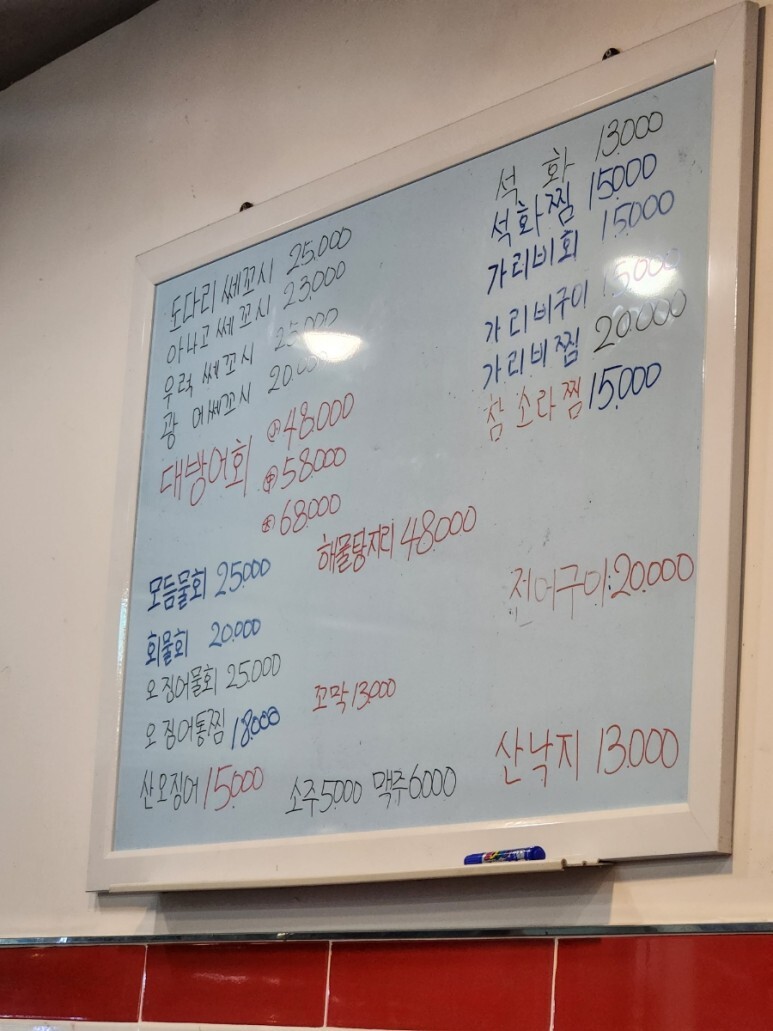 도다리 쎄꼬시 25.000
아나고 쎄꼬시 23.000
우럭 쎄꼬시 25.000
광 어쎄꼬시 20.000
대방어회 ㉦ 48.000
㊥ 58.000
㊛ 68.000
해물탕지리 48.000
모듬물회 25.000
회물회 20.000
오징어물회 25.000
오징어통찜 18.000
산오징어 15.000
꼬막 13.000
소주 5.000 맥주 6.000
석 화 13.000
석화찜 15.000
가리비회 15.000
가리비구이 15.000
가리비찜 20.000
참소라찜 15.000
전어구이 : 20.000
산낙지 13.000